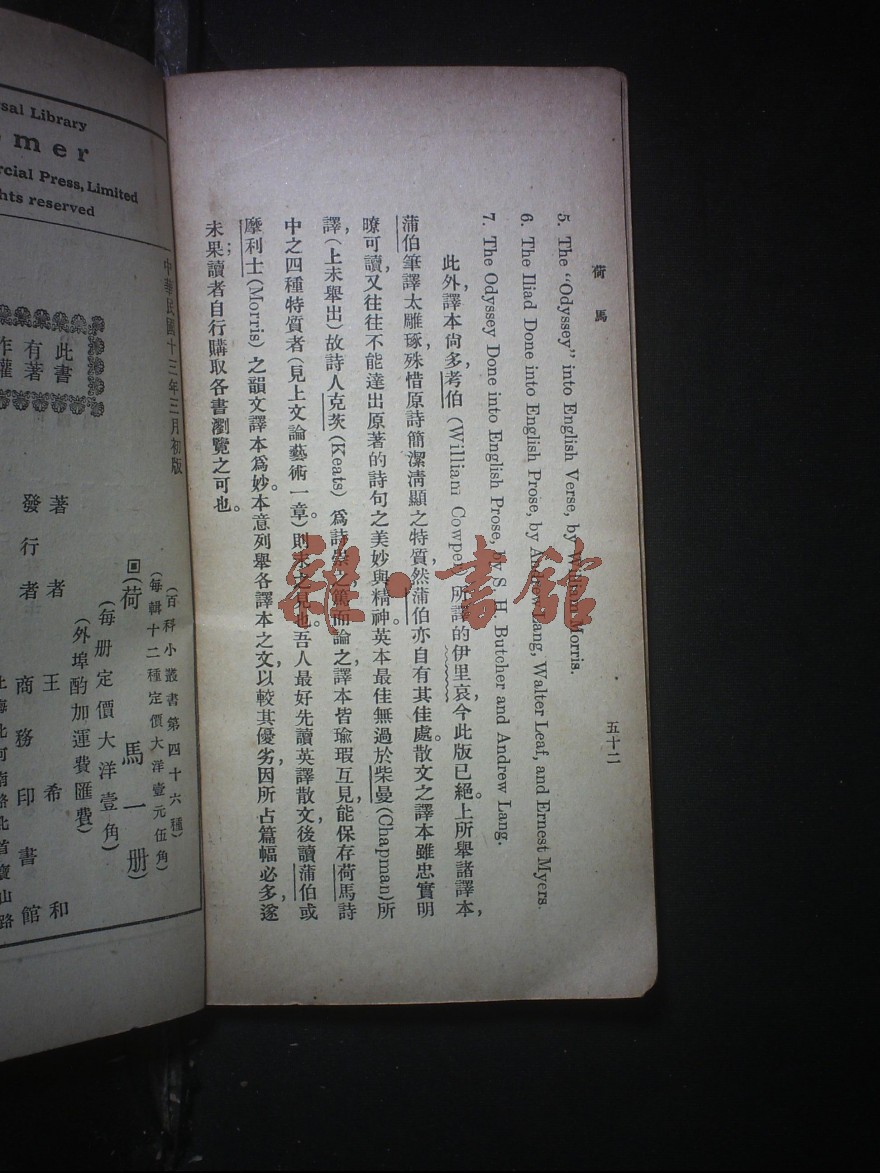 荷馬
五十二
5. The "Odyssey" into English Verse, by William Morris.
6. The Iliad Done into English Prose, by Andrew Lang, Walter Leaf, and Ernest Myers.
7. The Odyssey Done into English Prose, by S. H. Butcher and Andrew Lang.
此外,譯本尙多,考伯 (William Cowper) 所譯的伊里哀,今此版已絕。上所舉諸譯本,
蒲伯筆譯太雕琢,殊惜原詩簡潔淸顯之特質,然蒲伯亦自有其佳處。散文之譯本雖忠實明
暸可讀,又往往不能達出原著的詩句之美妙與精神。英本最佳無過於柴曼(Chapman)所
譯,(上未舉出)故詩人克茨(Keats)爲詩崇之。篤而論之,譯本皆瑜瑕互見,能保存荷馬詩
中之四種特質者(見上文論藝術一章)則未之見也。吾人最好先讀英譯散文,後讀蒲伯或
摩利士(Morris)之韻文譯本爲妙。本意列舉各譯本之文以較其優劣,因所占篇幅必多,遂
未果;讀者自行購取各書瀏覽之可也。
中華民國十三年三月初版
(百科小叢書第四十六種)
(每輯十二種定價大洋壹元伍角)
回(荷馬一册)
(每册定價大洋壹角)
(外埠酌加運費匯費)
著者 王希和
發行者 商務印書館
上海北河南路北首寶山路
此書
有著
作權
sal Library
omer
rcial Press, Limited
hts reserved
雜·書館